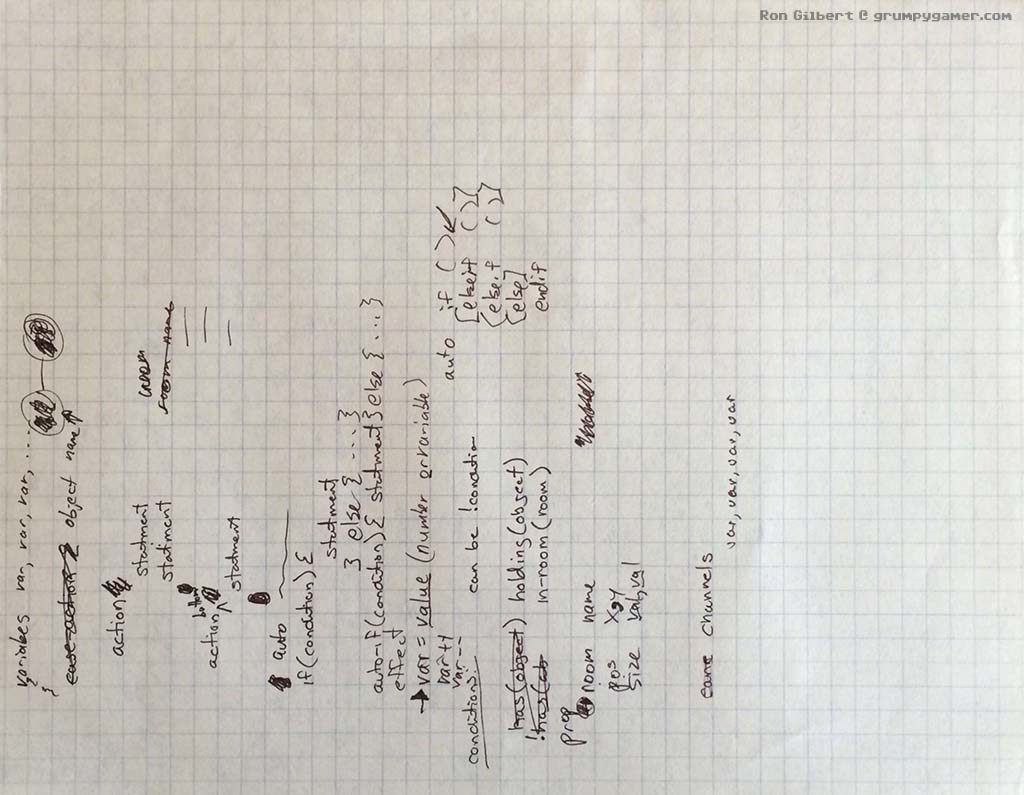 Ron Gilbert @ grumpygamer.com
variables var, var, var, ...
}
object name
action
statment
statiment
room name
action button
statment
auto
if (condition) {
statment
} else { ... }
auto-if (condition) { statment } else { ... }
effect
var = value (number or variable)
var ++
var --
conditions:
can be !condition
auto if ( )
[elseif ( )]
{else if ( )}
{else]
endif
has(object) holding(object)
!has(ob in-room (room)
prop
room name
pos x,y
size val,val
channels
var, var, var, var